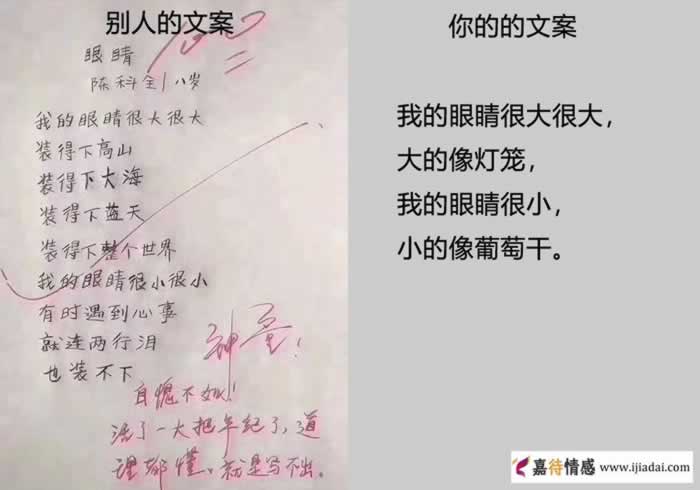 别人的文案
眼睛
陈科全 八岁
我的眼睛很大很大
装得下高山
装得下大海
装得下蓝天
装得下整个世界
我的眼睛很小很小
有时遇到心事
就连两行泪
也装不下
100
神童!
自愧不如!
活了一大把年纪了,道
理都懂,就是写不出。
你的的文案
我的眼睛很大很大，
大的像灯笼，
我的眼睛很小，
小的像葡萄干。
嘉待情感
www.ijiadai.com